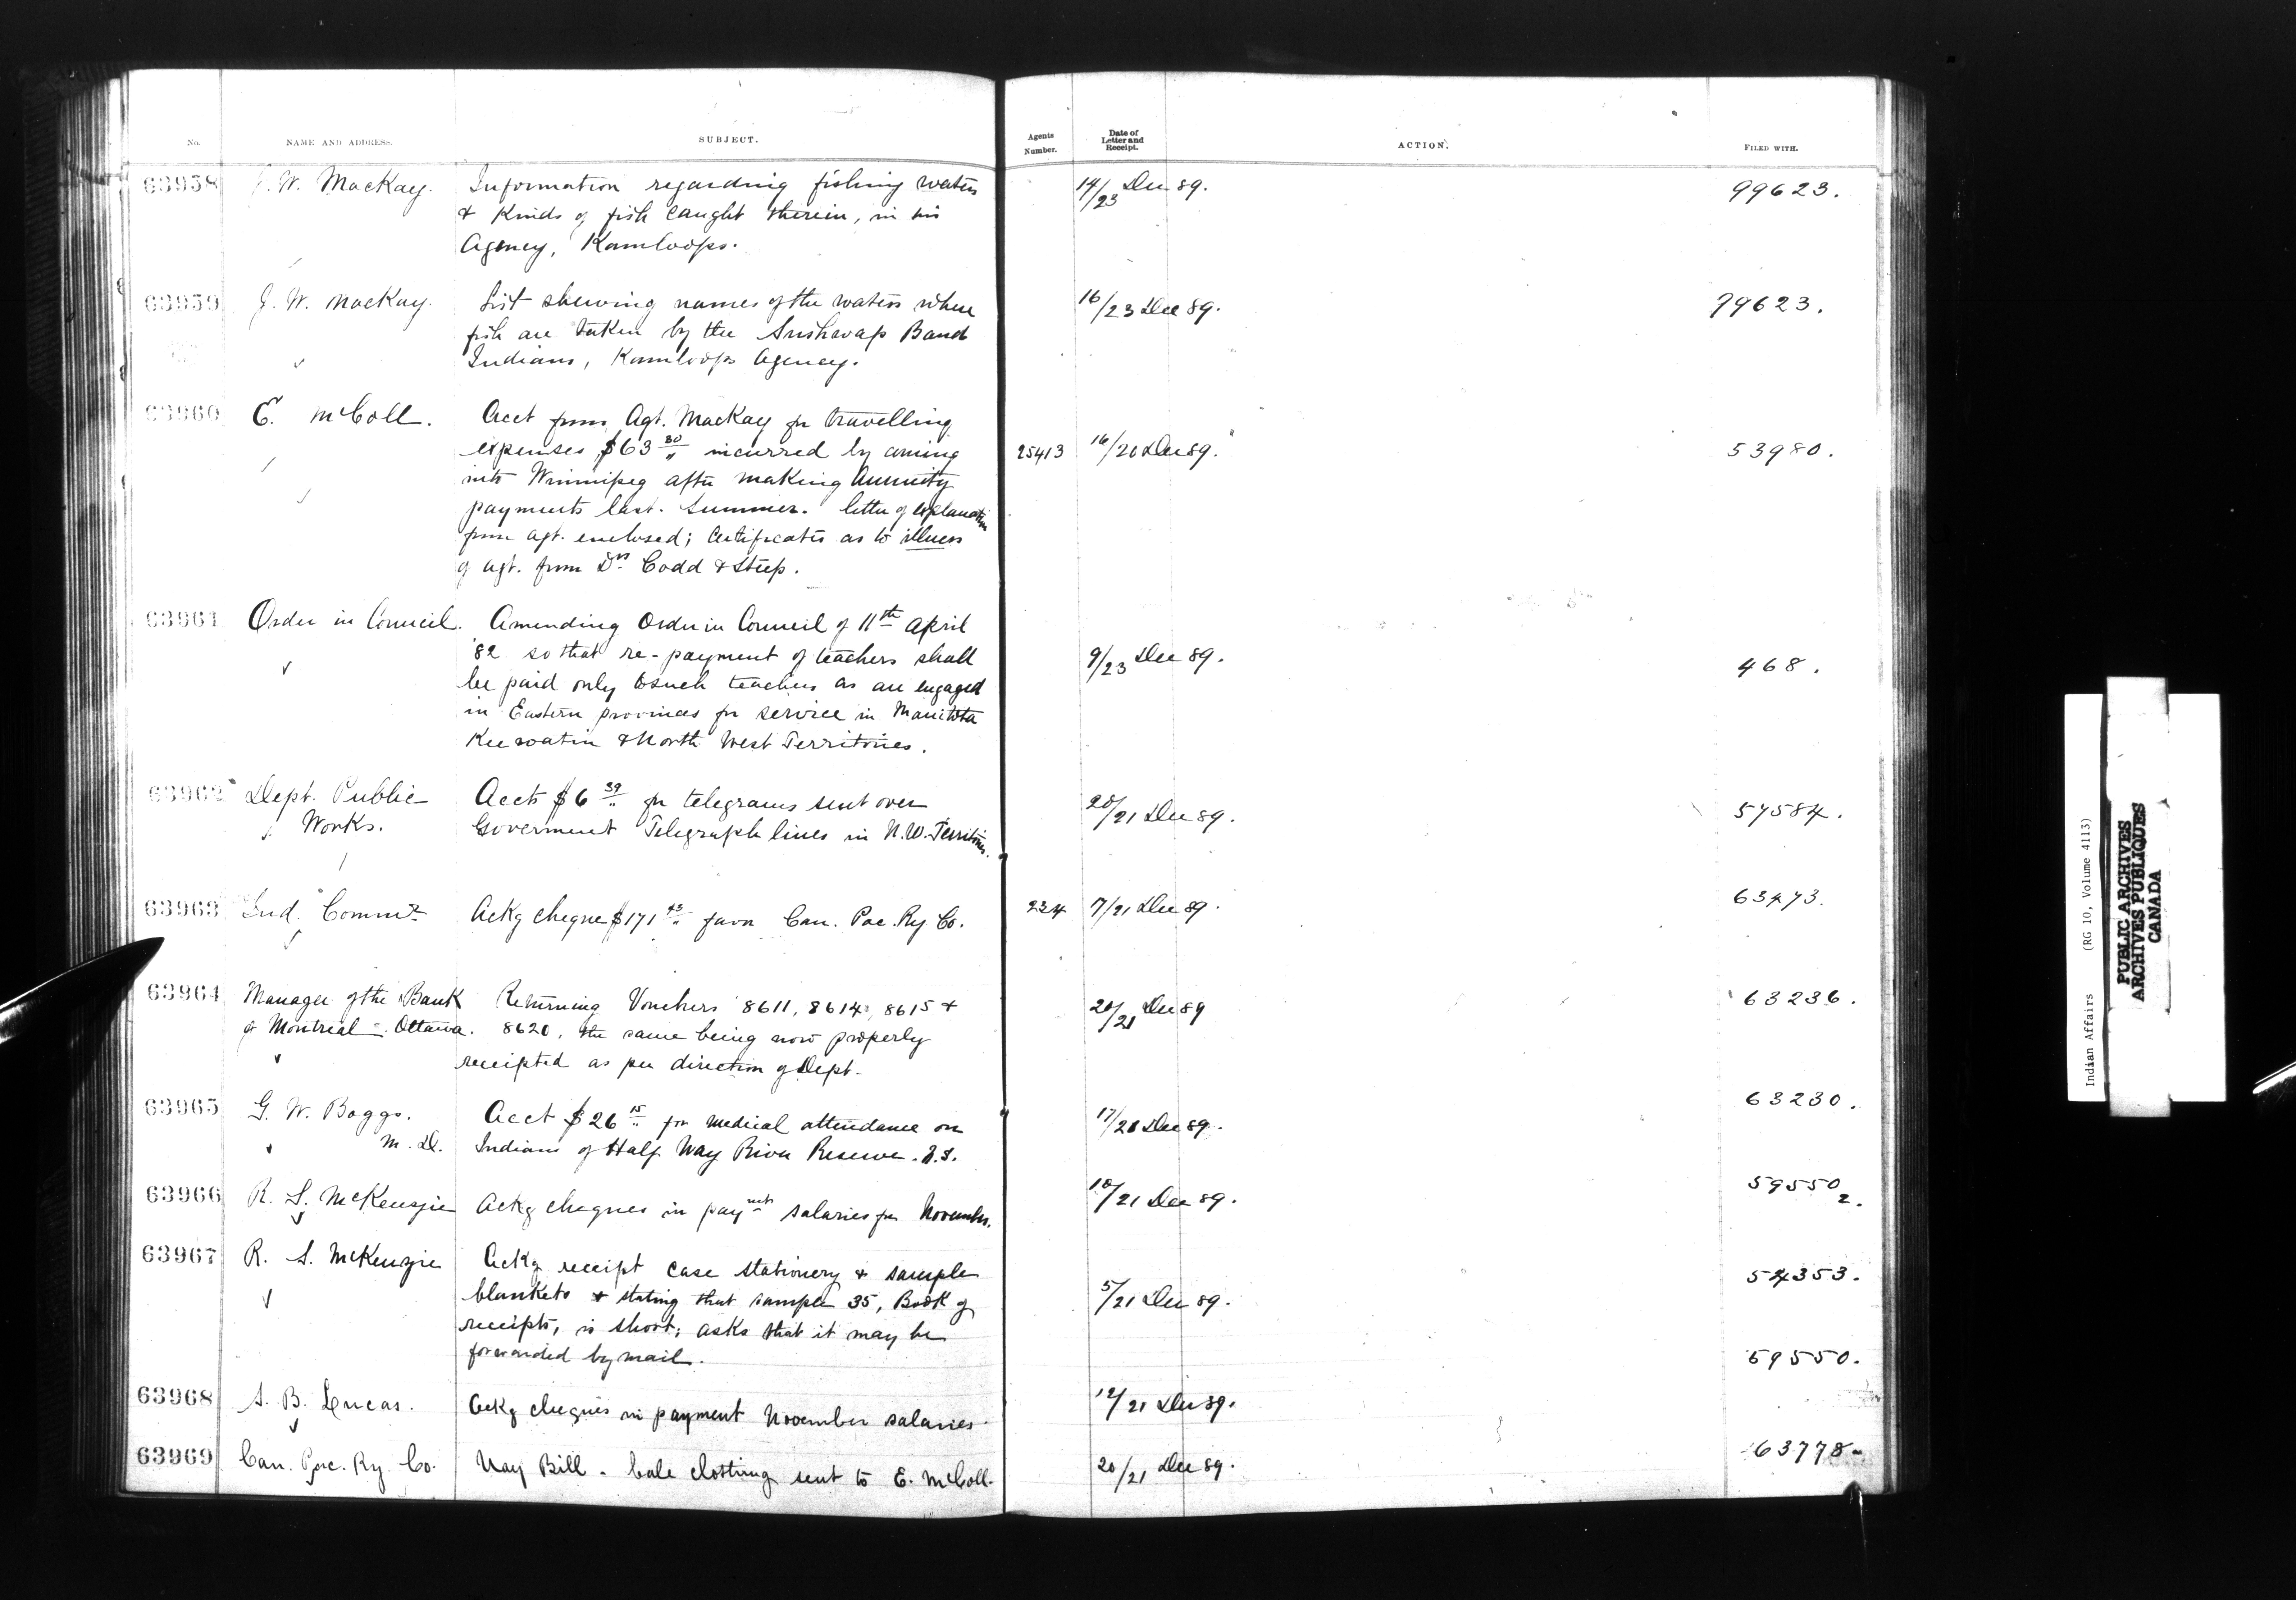 No. NAME AND ADDRESS. SUBJECT. Agents Number. Date of Letter and Receipt. ACTION. FILED WITH.
63958 J. W. MacKay. Information regarding fishing waters 14/23 Dec 89. 99623.
& kinds of fish caught therein, in his
Agency, Kamloops.
63959 J. W. MacKay. List shewing names of the waters where 16/23 Dec 89. 99623.
fish are taken by the Sushwap Band
Indians, Kamloops Agency.
63960 E. McColl. Acct from Agt. MacKay for travelling
expenses $63 30 incurred by coming 25413 16/20 Dec 89. 53980.
into Winnipeg after making Annuity
payments last Summer. letter of explanation
from agt. enclosed; Certificates as to illness
of agt. from Drs. Codd & Steep.
63961 Order in Council. Amending Order in Council of 11th April
'82 so that re-payment of teachers shall 9/23 Dec 89. 468.
be paid only to such teachers as are engaged
in Eastern provinces for service in Manitoba
Keewatin & North West Territories.
63962 Dept. Public Accts $6 39 for telegrams sent over 20/21 Dec 89. 57584.
Works. Goverment Telegraph lines in N.W. Territories.
63963 Ind. Commr Ackg cheque $171 43 favor Can. Pac. Ry Co. 234 7/21 Dec 89. 63473.
63964 Manager of the Bank Returning Vouchers 8611, 8614, 8615 & 20/21 Dec 89 63236.
of Montreal - Ottawa. 8620, the same being now properly
receipted as per direction of Dept.
63965 G. W. Boggs. Acct $26 15 for medical attendance on 17/21 Dec 89. 63230.
M. D. Indians of Half Way River Reserve. N.S.
63966 R. S. McKenzie Ackg cheques in paymnts salaries for November. 10/21 Dec 89. 59550 2.
63967 R. S. McKenzie Ackg receipt case stationery & sample 54353.
blankets & stating that sample 35, Book of 5/21 Dec 89.
receipts, is short; asks that it may be
forwarded by mail. 59550.
63968 S. B. Lucas. Ackg cheques in payment November salaries 12/21 Dec 89.
63969 Can. Pac. Ry. Co. Way Bill. bale clothing sent to E. McColl. 20/21 Dec 89. 63778
Indian Affairs (RG 10, Volume 4113)
PUBLIC ARCHIVES
ARCHIVES PUBLIQUES
CANADA